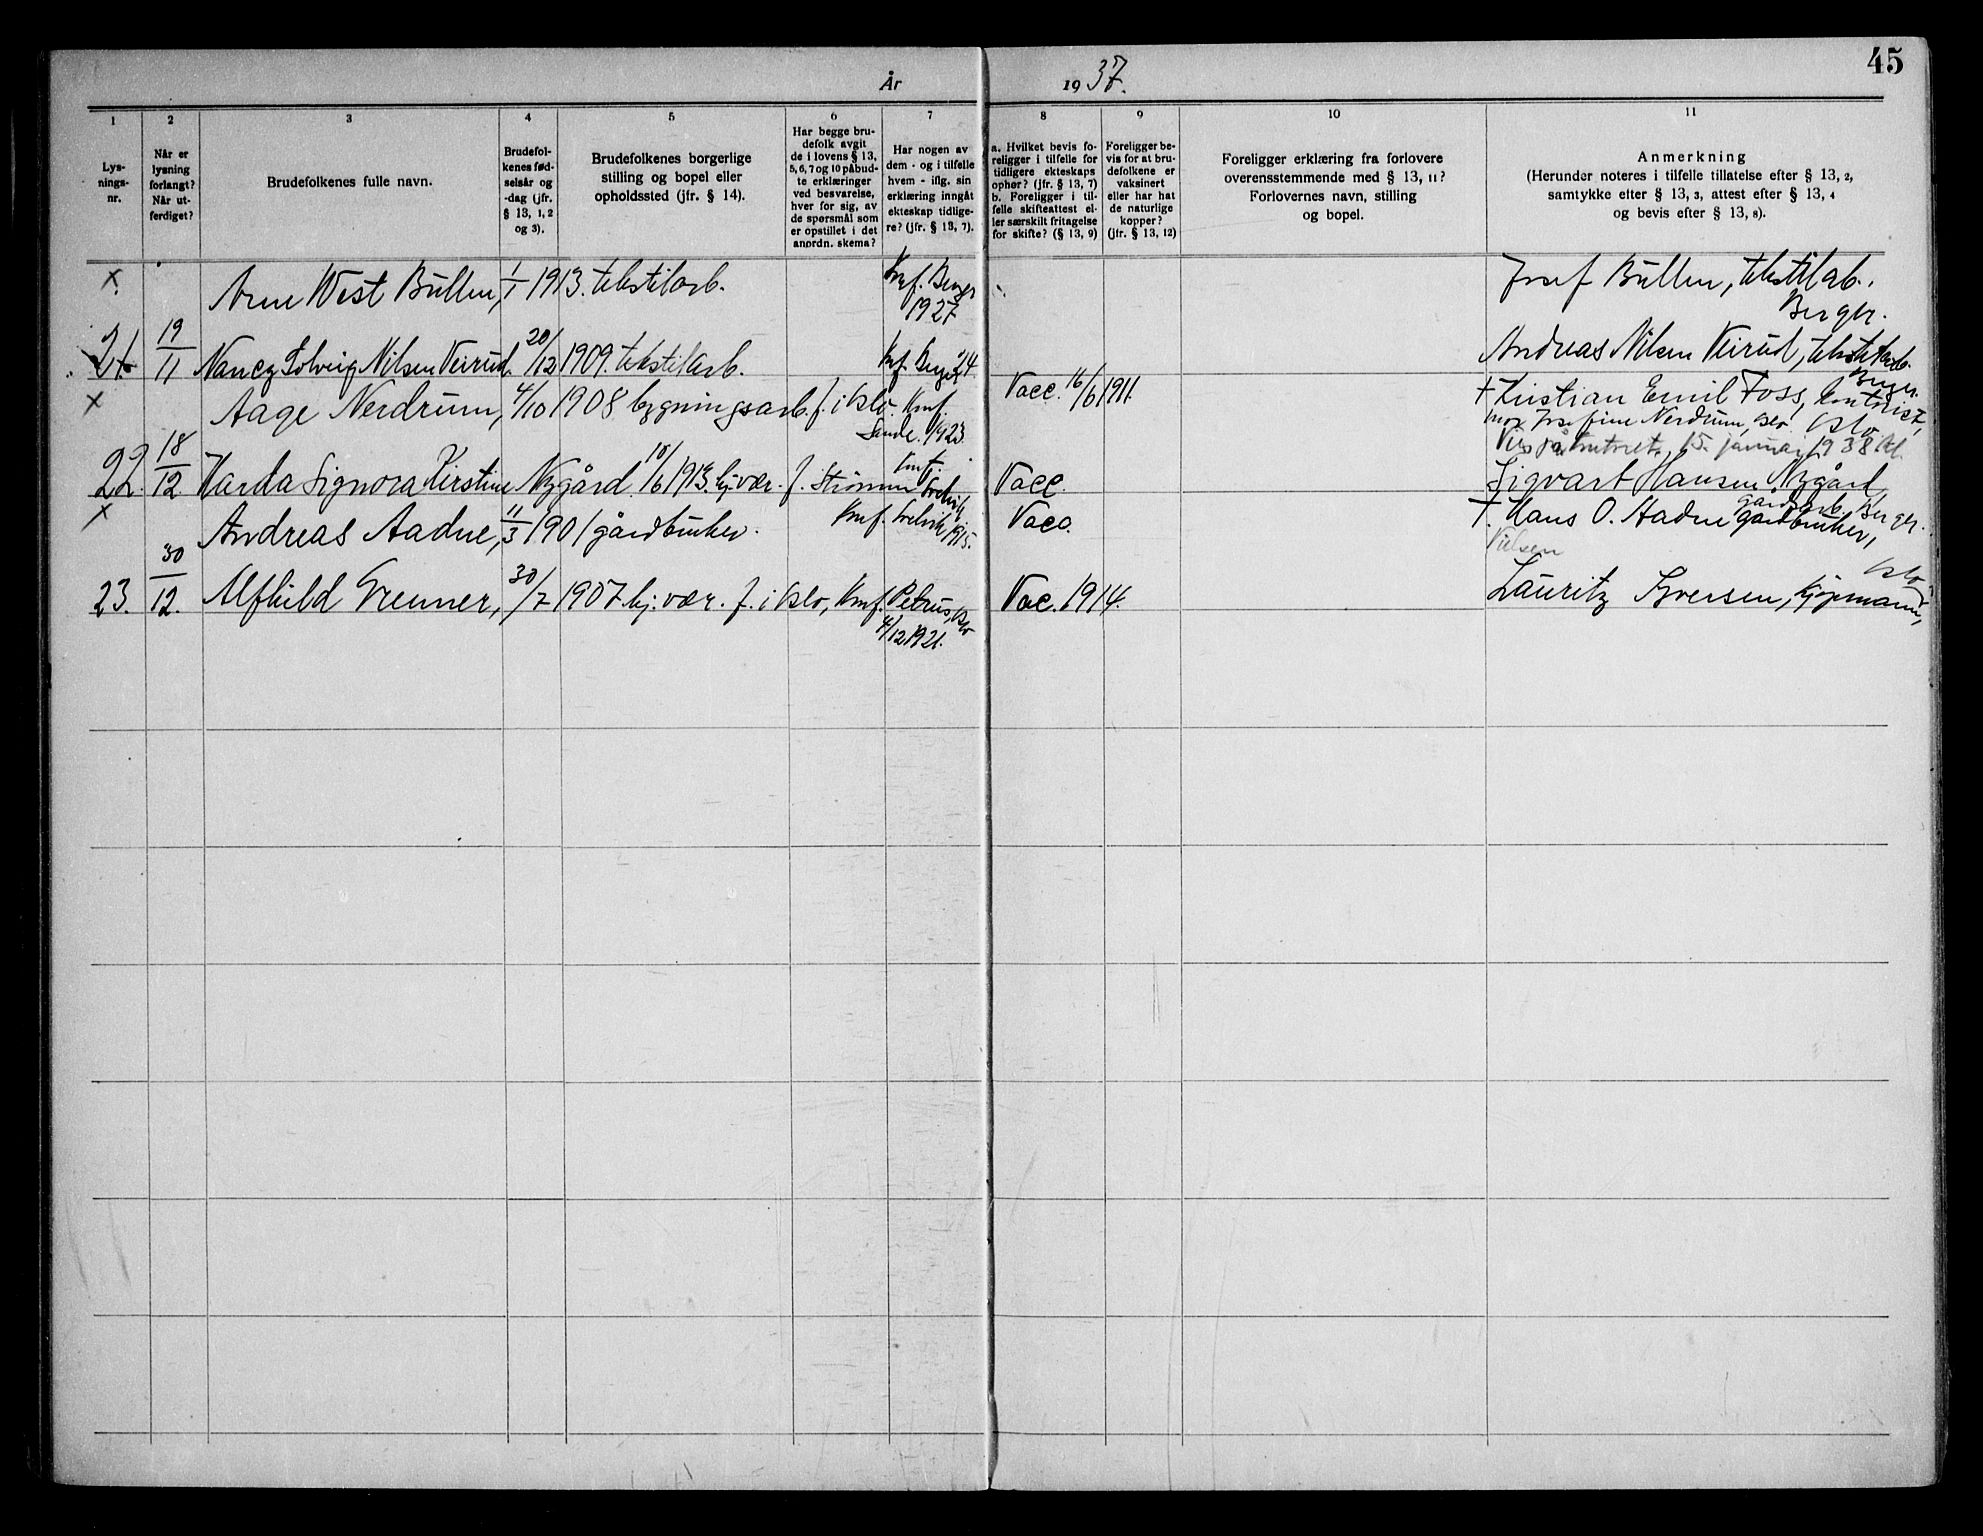 45
År 1937.
1
2
3
4
5
6
7
8
9
10
11
Lys-
nings-
nr.
Når er
lysning
forlangt?
Når ut-
ferdiget?
Brudefolkenes fulle navn.
Brudefol-
kenes fød-
selsår og
-dag (jfr.
§ 13, 1, 2
og 3).
Brudefolkenes borgerlige
stilling og bopel eller
opholdssted (jfr. § 14).
Har begge bru-
defolk avgit
de i lovens § 13,
5, 6, 7 og 10 påbud-
te erklæringer
ved besvarelse,
hver for sig, av
de spørsmål som
er opstillet i det
anordn. skema?
Har nogen av
dem - og i tilfelle
hvem - iflg. sin
erklæring inngåt
ekteskap tidlige-
re? (jfr. § 13, 7).
a. Hvilket bevis fo-
religger i tilfelle for
tidligere ekteskaps
ophør? (jfr. § 13, 7)
b. Foreligger i til-
felle skifteattest el-
ler særskilt fritagelse
for skifte? (§ 13, 9)
Foreligger be-
vis for at bru-
defolkene er
vaksinert
eller har hat
de naturlige
kopper?
(jfr. § 13, 12)
Foreligger erklæring fra forlovere
overensstemmende med § 13, 11?
Forlovernes navn, stilling
og bopel.
Anmerkning
(Herunder noteres i tilfelle tillatelse efter § 13, 2,
samtykke efter § 13, 3, attest efter § 13, 4
og bevis efter § 13, 8).
x Arne West Bullen, 1/1 1913. tekstilarb. Konf. Berger 1927 Josef Bullen, tekstilarb. Berger.
21. 19/11 Nancy Solveig Nilsen Veirud. 20/12 1909. tekstilarb. Konf. Berger 24. Andreas Nilsen Veirud, tekstilarb. Berger.
x Aage Nerdrum, 4/10 1908 bygningsarb. f. i Oslo. Konf. Sande. 1923. Vacc. 16/6 1911. + Kristian Emil Foss, kontorist, Oslo
mor Josefine Nerdrum, Oslo.
15. januar 1938
22. 18/12 Harda Signora Kirstine Nygård. 18/6 1913. hj. vær. f. Strømm Konf. Svelvik Vacc. Sigvart Hansen Nygård gårdsarb. Berger.
x Andreas Aadne, 11/3 1901 gårdbruker. Konf. Svelvik, 1915. Vacc. +. Hans O. Aadne gårdbruker,
Nielsen
23. 30/12. Alfhild Grenner, 30/7 1907. hj. vær. f. i Oslo, Konf. Petrus, Oslo 4/12 1921. Vac. 1914. Lauritz Iversen, kjøpmann, Oslo